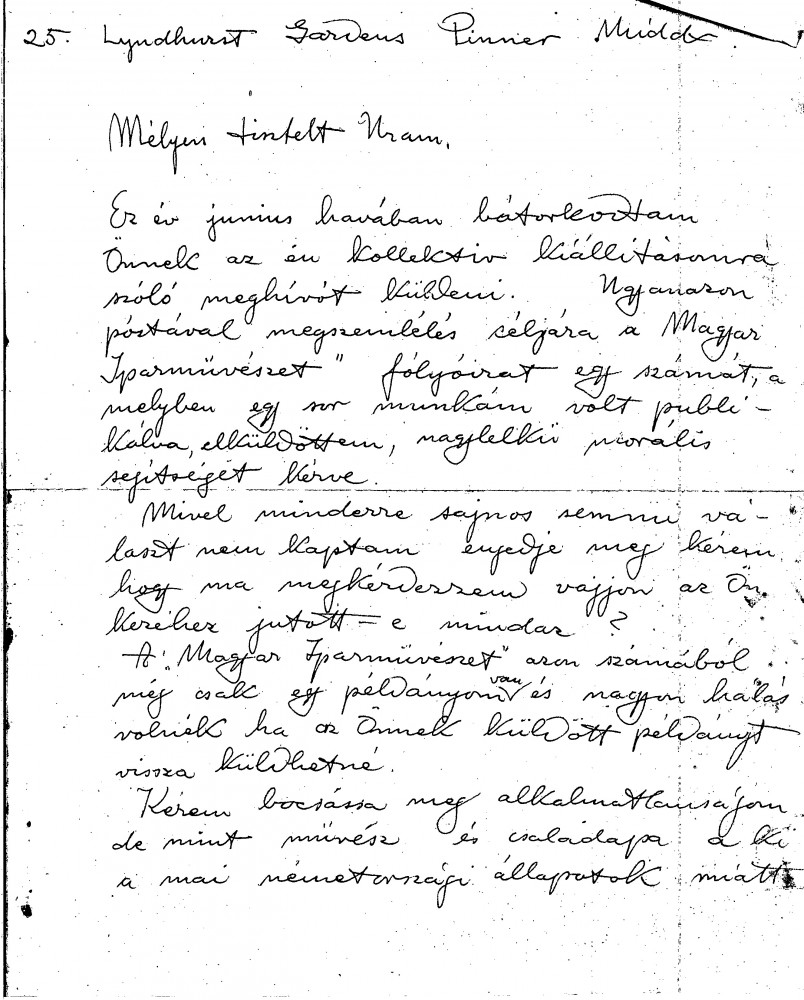 25. Lyndhurst Gardens Pinner Middx.
Mélyen tisztelt Uram,
Ez év junius havában bátorkodtam
Önnek az én kollektiv kiállitásomra
szóló meghívót küldeni. Ugyanazon
póstával megszemlélés céljára a Magyar
Iparmüvészet" fólyóirat egy számát, a
melyben egy sor munkám volt publi-
kálva, elküldöttem, nagylelkü morális
segitségét kérve.
Mivel minderre sajnos semmi vá-
laszt nem kaptam engedje meg kérem
hogy ma megkérdezzem vajjon az Ön
kezéhez jutott-e mindaz?
A "Magyar Iparmüvészet" azon számából
még csak egy példányom van és nagyon hálás
volnék ha az Önnek küldött példányt
vissza küldhetné.
Kérem bocsássa meg alkalmatlanságom
de mint müvész és családapa a ki
a mai németországi állapotok miatt